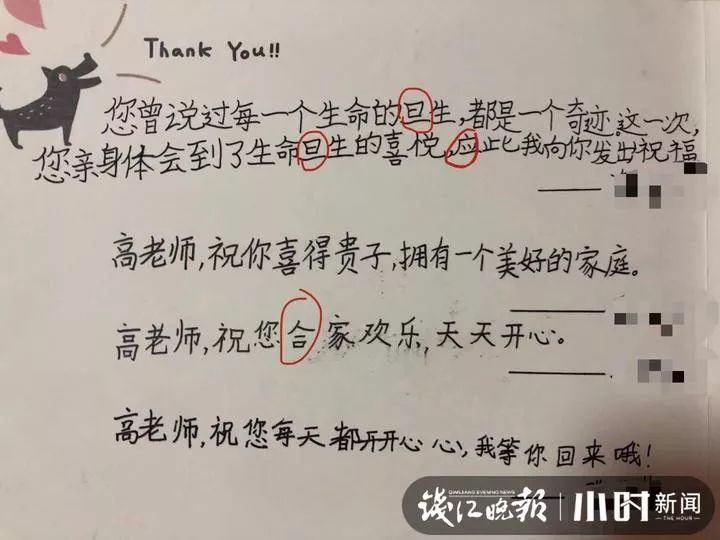 Thank You!!
您曾说过每一个生命的旦生,都是一个奇迹。这一次,
您亲身体会到了生命旦生的喜悦,应此我向你发出祝福
高老师,祝你喜得贵子,拥有一个美好的家庭。
高老师,祝您合家欢乐,天天开心。
高老师,祝您每天都开开心心,我等你回来哦!
钱江晚报 | 小时新闻
QIANJIANG EVENING NEWS THE HOUR